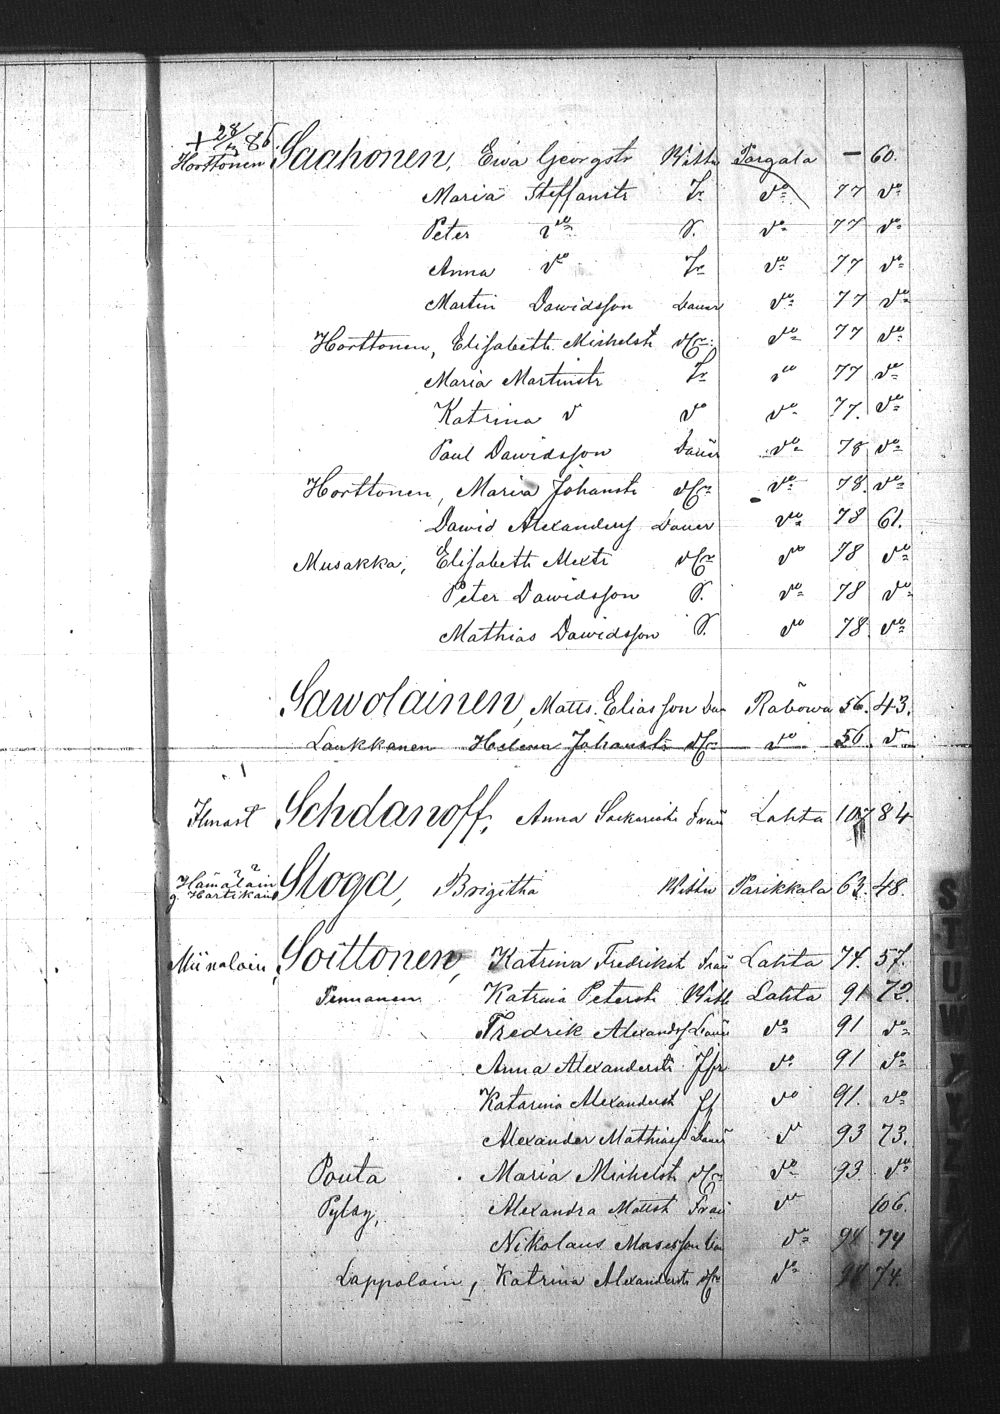 + 28/3 86.
Horttonen Saahonen, Ewa Georgstr Wittw Targala — 60.
Maria Steffanstr Tr do 77 do
Peter do S. do 77 do
Anna do Tr do 77 do
Martin Dawidsson Bauer do 77 do
Horttonen, Elisabeth Michelstr do 77 do
Maria Martinstr Tr do 77 do
Katrina d do do 77. do
Paul Dawidsson Bauer do 78 do
Horttonen, Maria Johanstr do 78. do
Dawid Alexanders Bauer do 78 61.
Musakka, Elisabeth Alextr do 78 do
Peter Dawidsson S. do 78 do
Mathias Dawidsson S. do 78. do
Sawolainen, Matts. Eliasson Bau Räbowa 56. 43.
Laukkanen Helena Johanstr do 56. d
Ilmast Schdanoff, Anna Sackaristr Frau Lahta 107 84
Hämäläin
g. Hartikain Sloga, Brigitha Wittw Parikkala 63. 48.
Miinalain, Soittonen, Katrina Fredrikstr Frau Lahta 74. 57.
Pennanen Katrina Peterstr Wittw Lahta 91 72.
Fredrik Alexanders Bauer do 91 do
Anna Alexanderstr Jfr do 91 do
Katarina Alexanderstr Jf do 91. do
Alexander Mathias Bauer do 93 73.
Pouta Maria Michelstr do 93 do
Pylsy, Alexandra Mattstr Frau do 106.
Nikolaus Mosesson Bau do 94 74
Lappalain, Katrina Alexanderstr do 94 74.